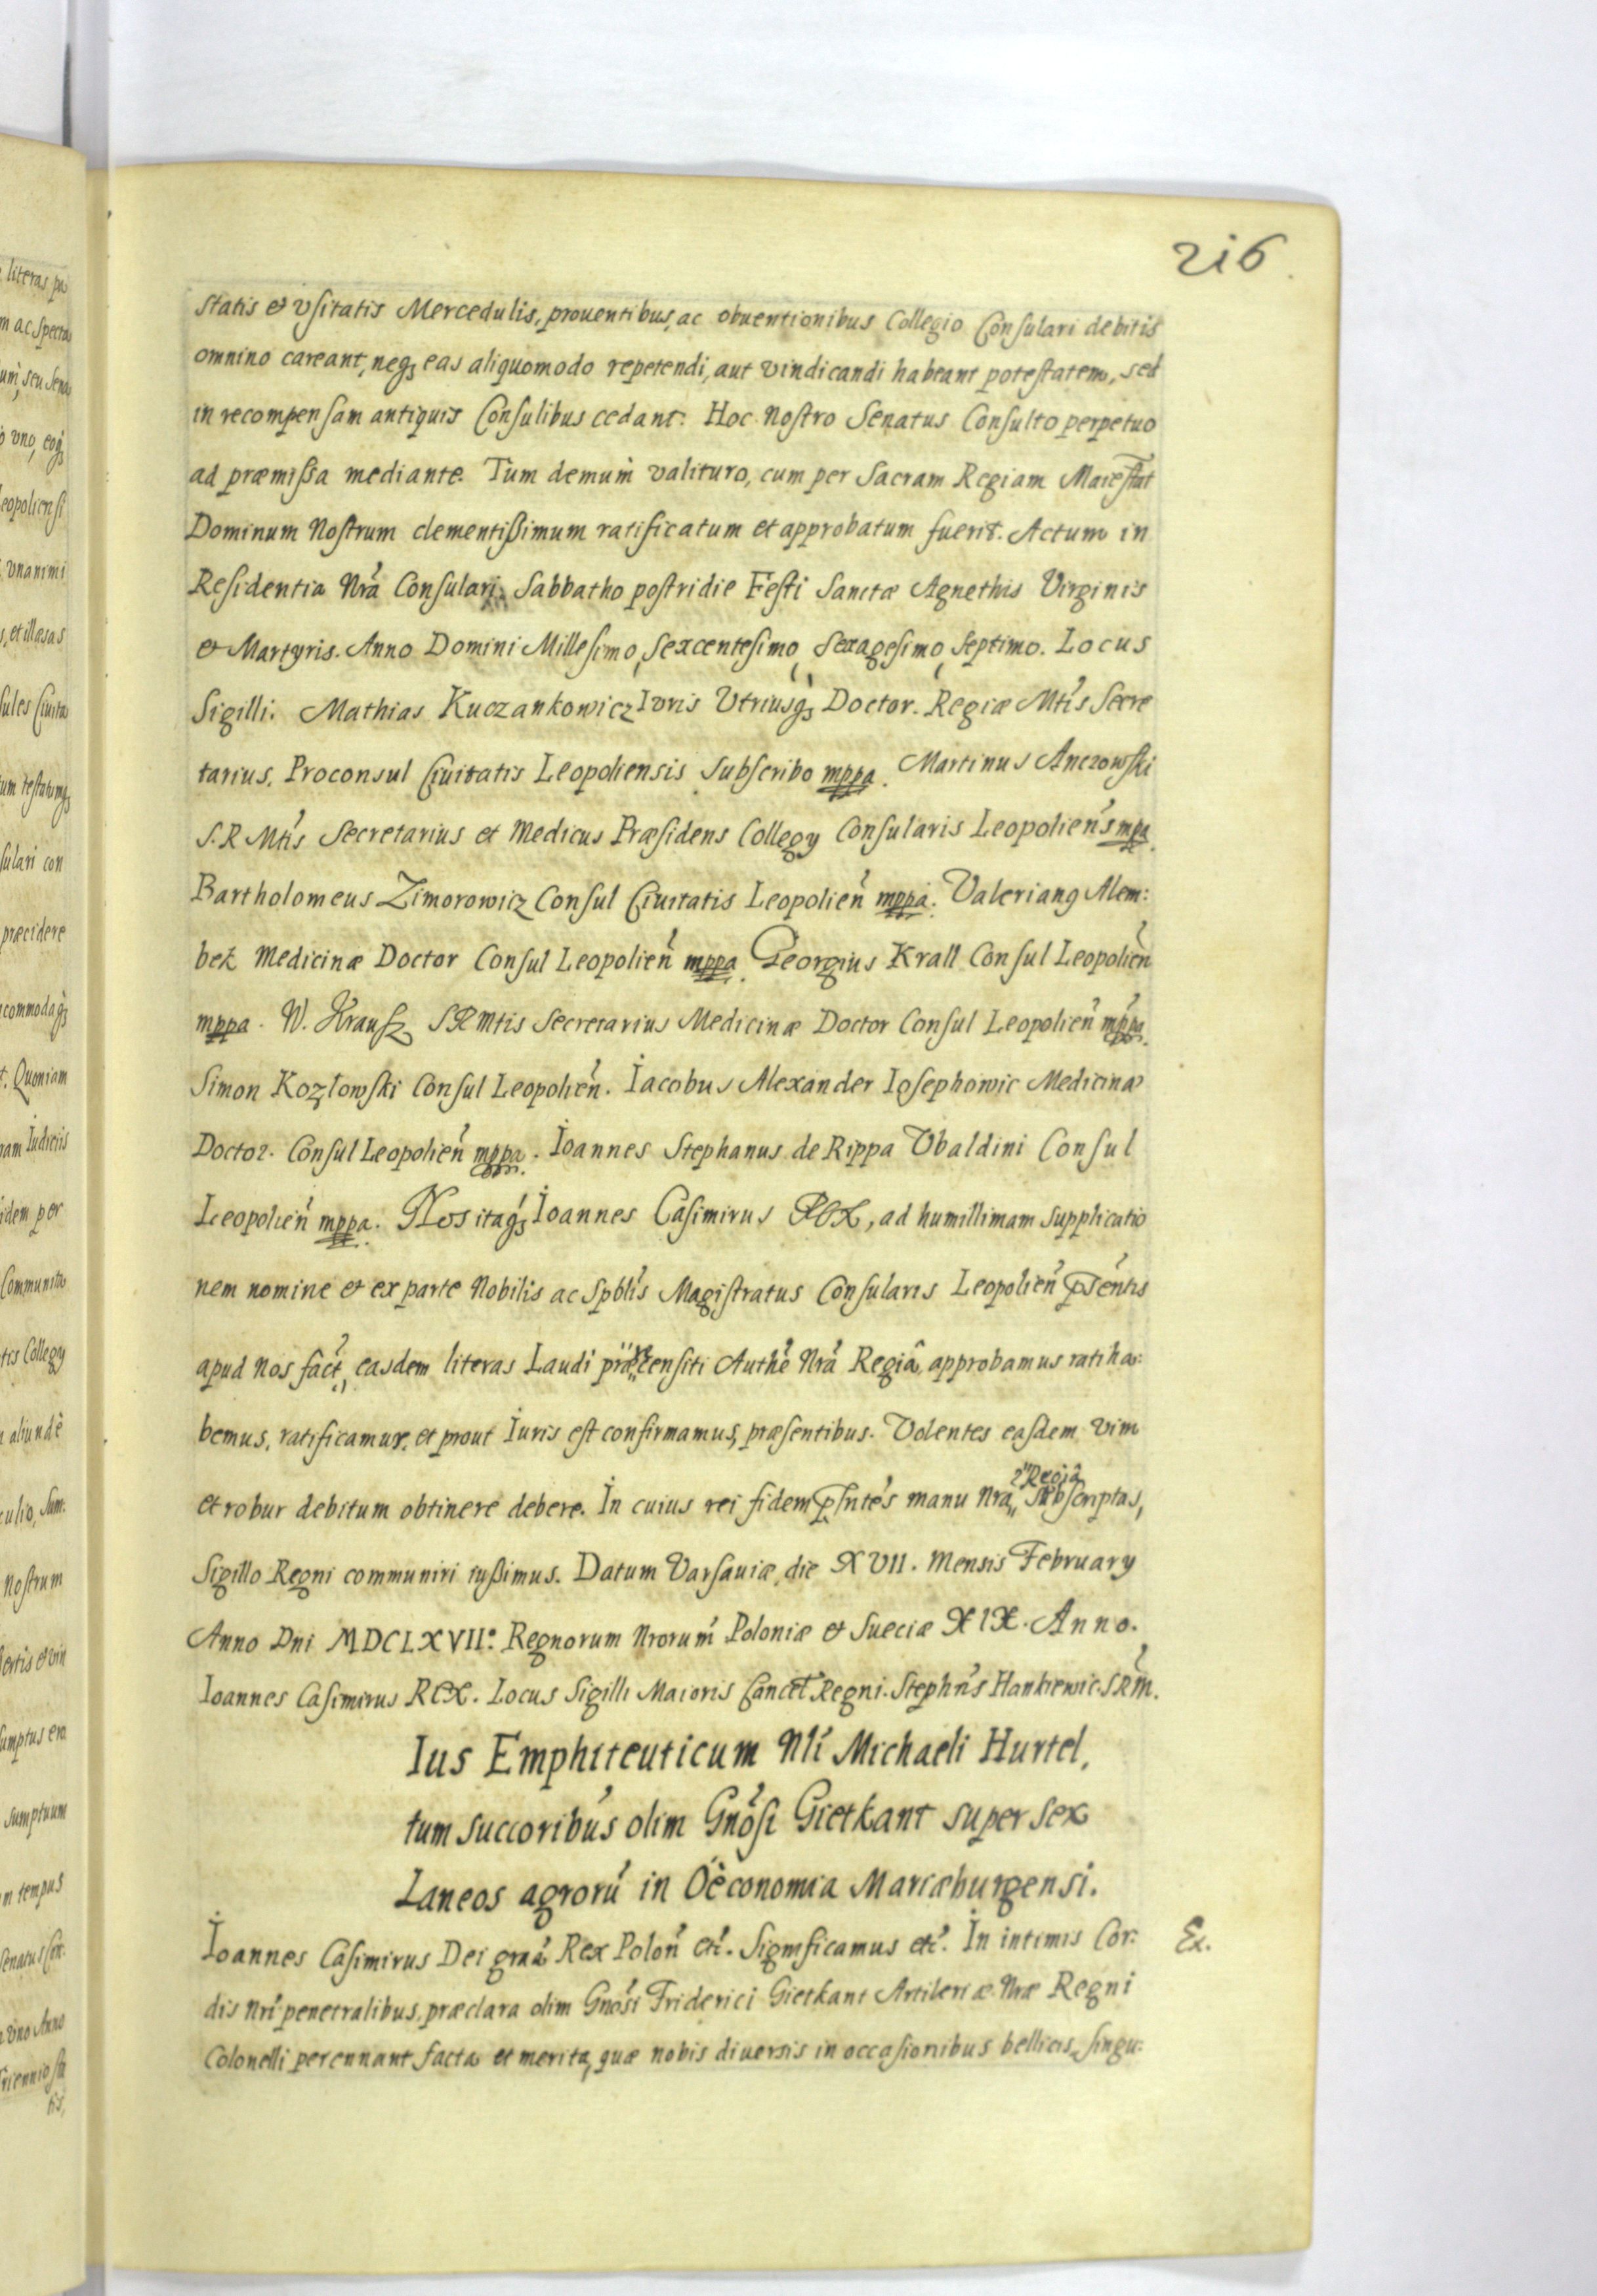 216
statis et usitatis Mercedulis, prouentibus, ac obuentionibus Collegio Consulari debitis
omnino careant, neqꝫ eas aliquomodo repetendi, aut vindicandi habeant potestatem, sed
in recompensam antiquis Consulibus cedant: Hoc Nostro Senatus Consulto perpetuo
ad præmissa mediante. Tum demum valituro, cum per Sacram Regiam Maiestat
Dominum Nostrum clementißimum ratificatum et approbatum fuerit. Actum in
Residentia Nrã Consulari, Sabbatho postridie Festi Sanctæ Agnethis Virginis
et Martyris. Anno Domini Millesimo, Sexcentesimo, Sexagesimo, Septimo. Locus
Sigilli. Mathias Kuczankowicz Iuris Utriusqꝫ Doctor. Regiæ Mtis Secre
tarius. Proconsul Ciuitatis Leopoliensis subscribo mppa. Martinus Anczowski
S. R Mtis Secretarius et Medicus Præsidens Collegy Consularis Leopolien's mpa.
Bartholomeus Zimorowicz Consul Ciuitatis Leopolien̉ mppa. Valerianꝯ Alem:
bek Medicinæ Doctor Consul Leopolien̉ mppa. Georgius Krall Consul Leopolien̉
mppa. W. Krausz SRMtis Secretarius Medicinæ Doctor Consul Leopolien̉ mppa.
Simon Kozłowski Consul Leopolien̉. Iacobus Alexander Iosephowic Medicinæ
Doctor. Consul Leopolien̉ mppa. Ioannes Stephanus de Rippa Ubaldini Consul
Leopolien̉ mppa. Nos itaqꝫ Ioannes Casimirus REX, ad humillimam supplicatio
nem nomine et ex parte Nobilis ac Spblis Magistratus Consularis Leopolien̉ pͤsentis
apud Nos fact̉, easdem literas Laudi præcensiti Authe Nrã Regiâ approbamus ratiha:
bemus, ratificamus, et prout Iuris est confirmamus, præsentibus. Volentes easdem vim
et robur debitum obtinere debere. In cuius rei fidem pͤsntes manu Nrã Regiâ subscriptas,
Sigillo Regni communiri iußimus. Datum Varsauiæ, die XVII. Mensis February
Anno Dni MDCLXVII°. Regnorum Nrorum Poloniæ et Sueciæ XIX. Anno.
Ioannes Casimirus REX. Locus Sigilli Maioris Cancell Regni. Stephn's Hankiewic. SRM̉.
Ius Emphiteuticum Nli Michaeli Hurtel,
tum succoribus olim Gnosi Gietkant super sex
Laneos agroru in Oëconomia Mariæburgensi.
Ioannes Casimirus Dei graã Rex Polon̉ etc̉. Significamus etc̉. In intimis Cor:
Ex.
dis Nri penetralibus, præclara olim Gnosi Friderici Gietkant Artileriæ Nræ Regni
Colonelli perennant facta et merita, quæ nobis diuersis in occasionibus bellicis, singu: